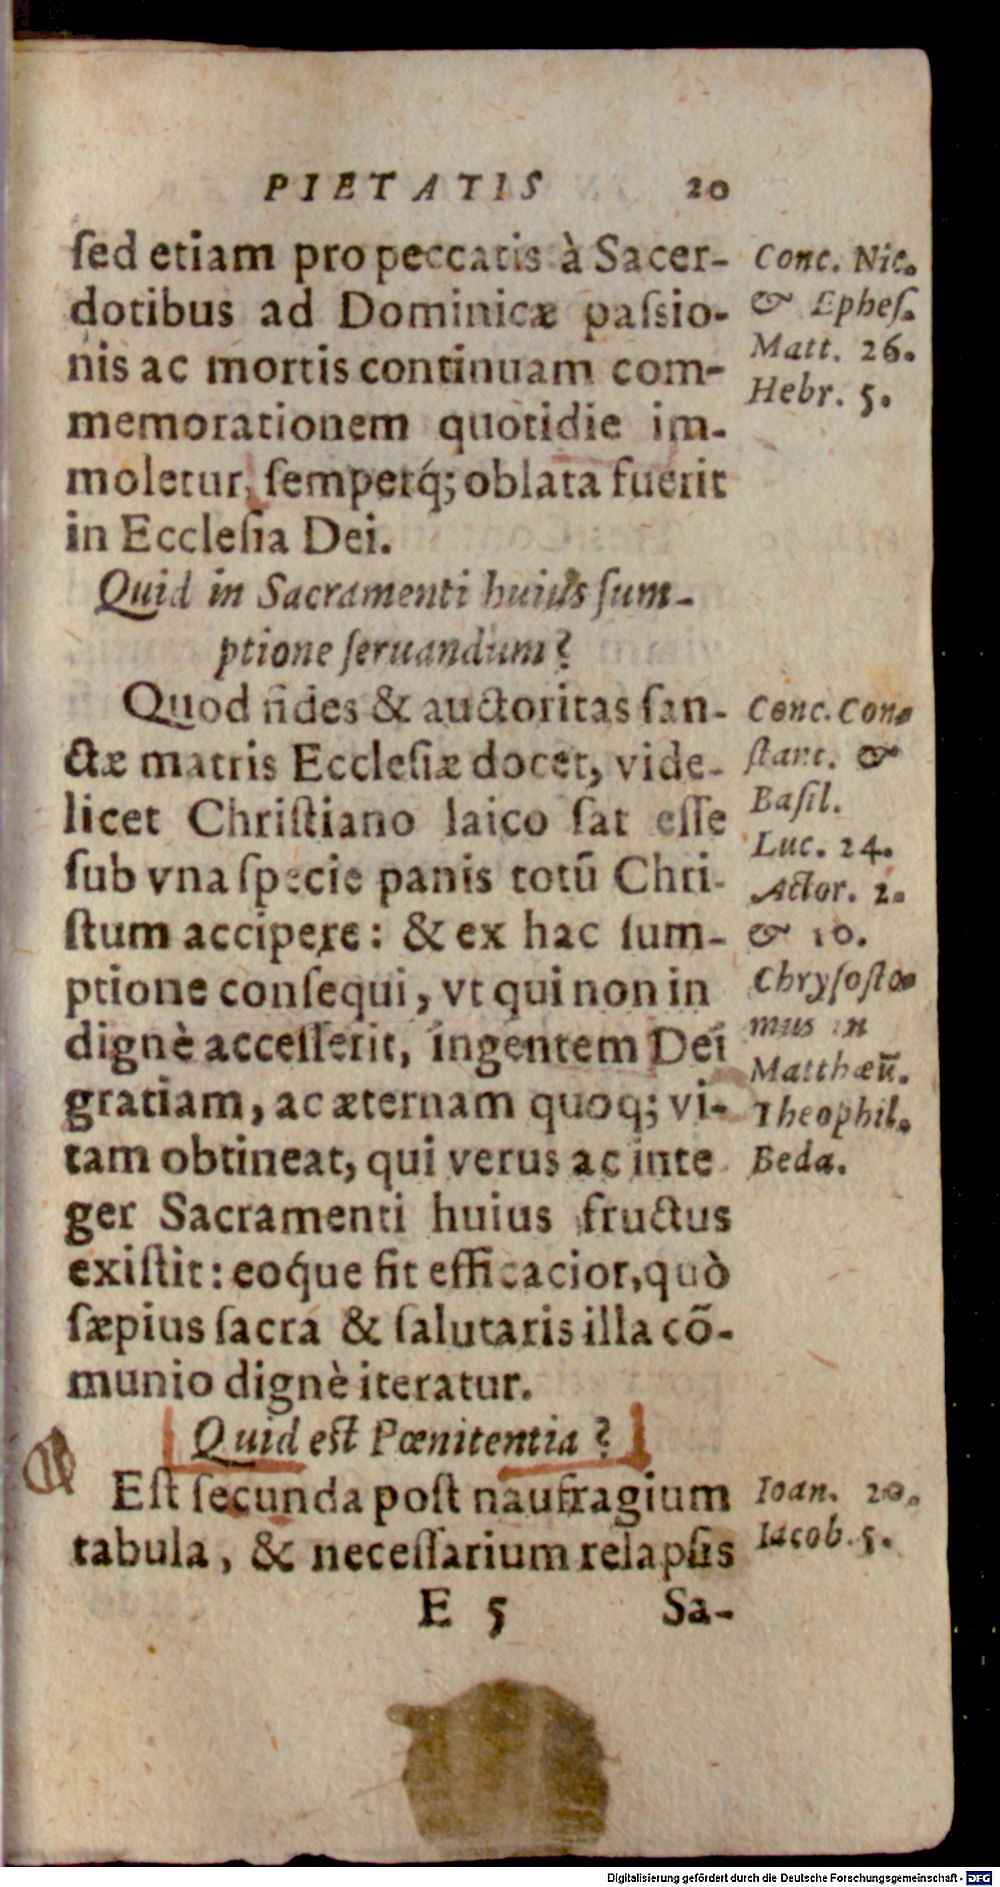 PIETATIS 20
ſed etiam pro peccatis à Sacer-
dotibus ad Dominicæ paſsio-
nis ac mortis continuam com-
memorationem quotidie im-
moletur, ſemperq́; oblata fuerit
in Eccleſia Dei.
Conc. Nic.
& Epheſ.
Matt. 26.
Hebr. 5.
Quid in Sacramenti huius ſum-
ptione ſeruandum?
Quod fides & auctoritas ſan-
ctæ matris Eccleſiæ docet, vide-
licet Chriſtiano laico ſat eſſe
ſub vna ſpecie panis totũ Chri-
ſtum accipere: & ex hac ſum-
ptione conſequi, vt qui non in
dignè acceſſerit, ingentem Dei
gratiam, ac æternam quoq; vi-
tam obtineat, qui verus ac inte
ger Sacramenti huius fructus
exiſtit: eoq́ue fit efficacior, quò
ſæpius ſacra & ſalutaris illa cõ-
munio dignè iteratur.
Conc. Con-
ſtant. &
Baſil.
Luc. 24.
Actor. 2.
& 10.
Chryſoſto-
mus in
Matthæũ.
Theophil.
Beda.
Quid eſt Pœnitentia?
Eſt ſecunda poſt naufragium
tabula, & neceſſarium relapſis
Ioan. 20.
Iacob. 5.
E 5 Sa-
Digitalisierung gefördert durch die Deutsche Forschungsgemeinschaft - DFG